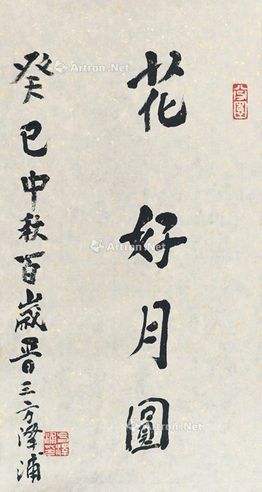 花好月圆
癸巳中秋百岁晋三方泽浦
Artron.Net
Artron.Net
Artron.Net